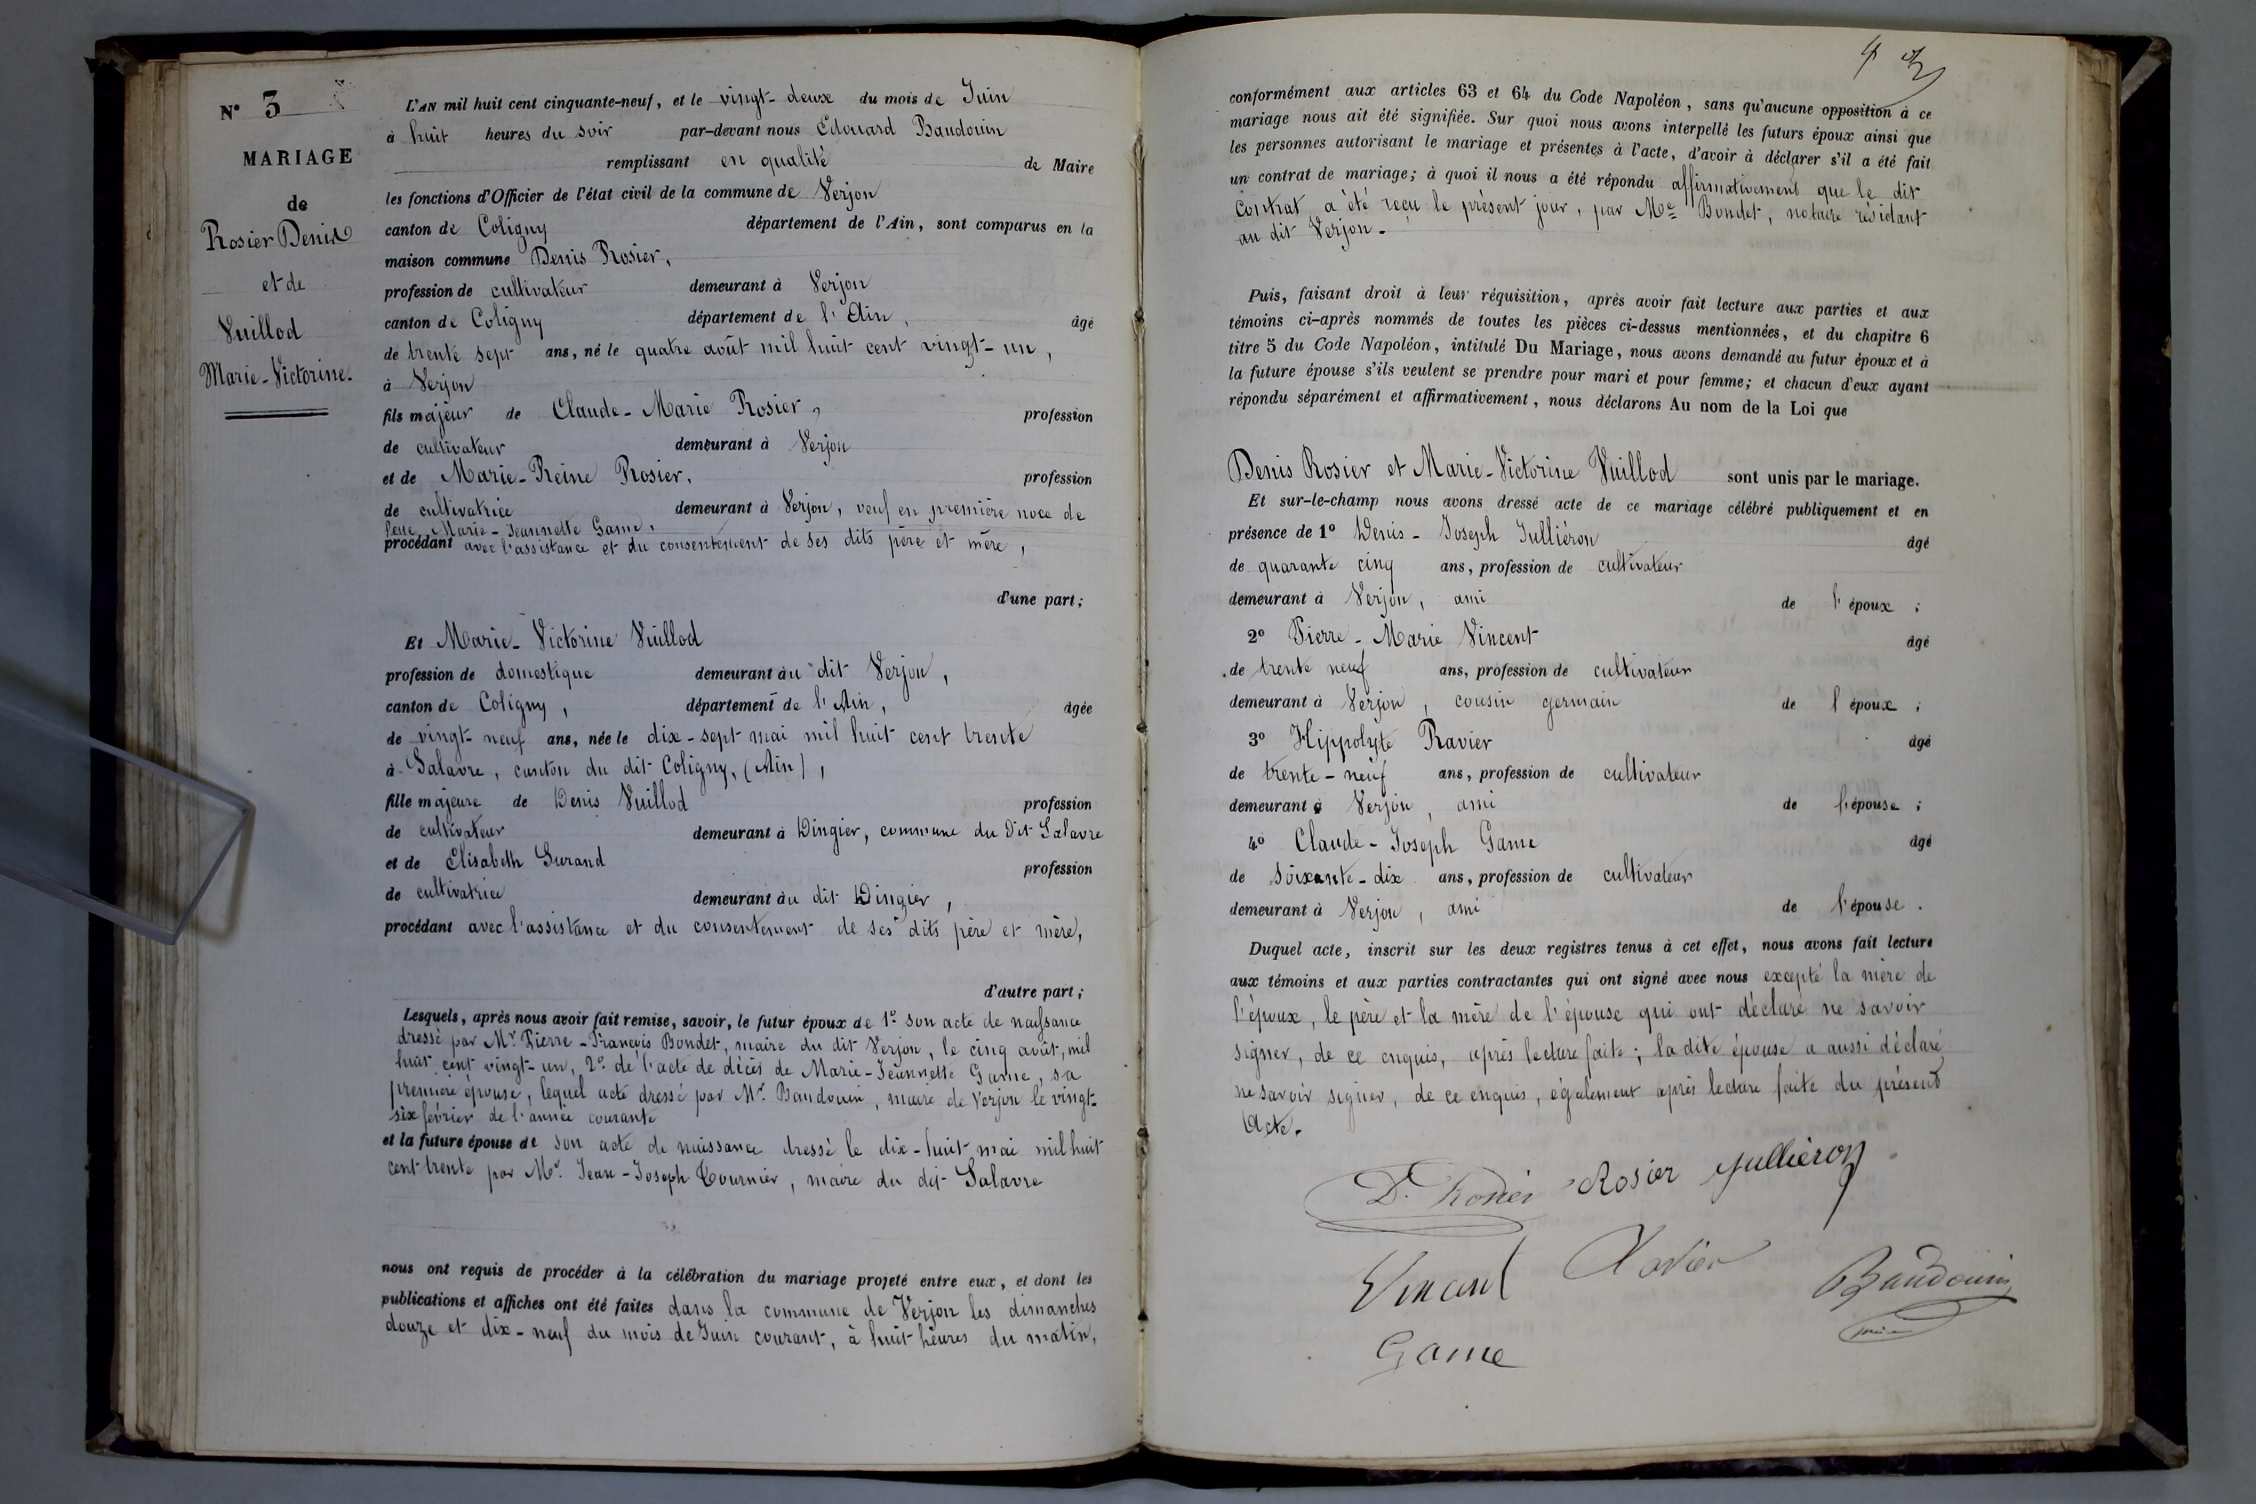 N° 3
MARIAGE
de
Rosier Denis
et de
Vuillod
Marie-Victorine.
L'AN mil huit cent cinquante-neuf, et le vingt-deux du mois de Juin
à huit heures du soir par-devant nous Edouard Baudouin
remplissant en qualité de Maire
les fonctions d'Officier de l'état civil de la commune de Verjon
canton de Coligny département de l'Ain, sont comparus en la
maison commune Denis Rosier,
profession de cultivateur demeurant à Verjon
canton de Coligny département de l'Ain, âgé
de trente sept ans, né le quatre août mil huit cent vingt-un,
à Verjon
fils majeur de Claude-Marie Rosier, profession
de cultivateur demeurant à Verjon
et de Marie-Reine Rosier, profession
de cultivatrice demeurant à Verjon, veuf en première noce de
feue Marie-Jeannette Game,
procédant avec l'assistance et du consentement de ses dits père et mère,
d'une part;
Et Marie-Victorine Vuillod
profession de domestique demeurant àu dit Verjon,
canton de Coligny, département de l'Ain, âgée
de vingt-neuf ans, née le dix-sept mai mil huit cent trente
à Salavre, canton du dit Coligny, (Ain),
fille majeure de Denis Vuillod profession
de cultivateur demeurant à Dingier, commune du dit Salavre
et de Elisabeth Surand profession
de cultivatrice demeurant àu dit Dingier,
procédant avec l'assistance et du consentement de ses dits père et mère,
d'autre part;
Lesquels, après nous avoir fait remise, savoir, le futur époux de 1° son acte de naissance
dressé par Mr Pierre-François Bondet, maire du dit Verjon, le cinq août, mil
huit cent vingt-un, 2° de l'acte de décès de Marie-Jeannette Game, sa
première épouse, lequel acte dressé par Mr. Baudouin, maire de Verjon le vingt-
six février de l'année courante
et la future épouse de son acte de naissance dressé le dix-huit mai mil huit
cent trente par Mr. Jean-Joseph Tournier, maire du dit Salavre
nous ont requis de procéder à la célébration du mariage projeté entre eux, et dont les
publications et affiches ont été faites dans la commune de Verjon les dimanches
douze et dix-neuf du mois de Juin courant, à huit heures du matin,
conformément aux articles 63 et 64 du Code Napoléon, sans qu'aucune opposition à ce
mariage nous ait été signifiée. Sur quoi nous avons interpellé les futurs époux ainsi que
les personnes autorisant le mariage et présentes à l'acte, d'avoir à déclarer s'il a été fait
un contrat de mariage; à quoi il nous a été répondu affirmativement que le dit
contrat a été reçu le présent jour, par Me Bondet, notaire résidant
au dit Verjon.
Puis, faisant droit à leur réquisition, après avoir fait lecture aux parties et aux
témoins ci-après nommés de toutes les pièces ci-dessus mentionnées, et du chapitre 6
titre 5 du Code Napoléon, intitulé Du Mariage, nous avons demandé au futur époux et à
la future épouse s'ils veulent se prendre pour mari et pour femme; et chacun d'eux ayant
répondu séparément et affirmativement, nous déclarons Au nom de la Loi que
Denis Rosier et Marie-Victorine Vuillod sont unis par le mariage.
Et sur-le-champ nous avons dressé acte de ce mariage célébré publiquement et en
présence de 1° Denis-Joseph Julliéron âgé
de quarante cinq ans, profession de cultivateur
demeurant à Verjon, ami de l'époux;
2° Pierre-Marie Vincent âgé
de trente neuf ans, profession de cultivateur
demeurant à Verjon, cousin germain de l'époux;
3° Hippolyte Ravier âgé
de trente-neuf ans, profession de cultivateur
demeurant à Verjon, ami de l'épouse;
4° Claude-Joseph Game âgé
de soixante-dix ans, profession de cultivateur
demeurant à Verjon, ami de l'épouse.
Duquel acte, inscrit sur les deux registres tenus à cet effet, nous avons fait lecture
aux témoins et aux parties contractantes qui ont signé avec nous excepté la mère de
l'époux, le père et la mère de l'épouse qui ont déclaré ne savoir
signer, de ce enquis, après lecture faite; la dite épouse a aussi déclaré
ne savoir signer, de ce enquis, également après lecture faite du présent
Acte.
D. Rosier Rosier Jullieron
Vincent Ravier Baudouin
maire
Game